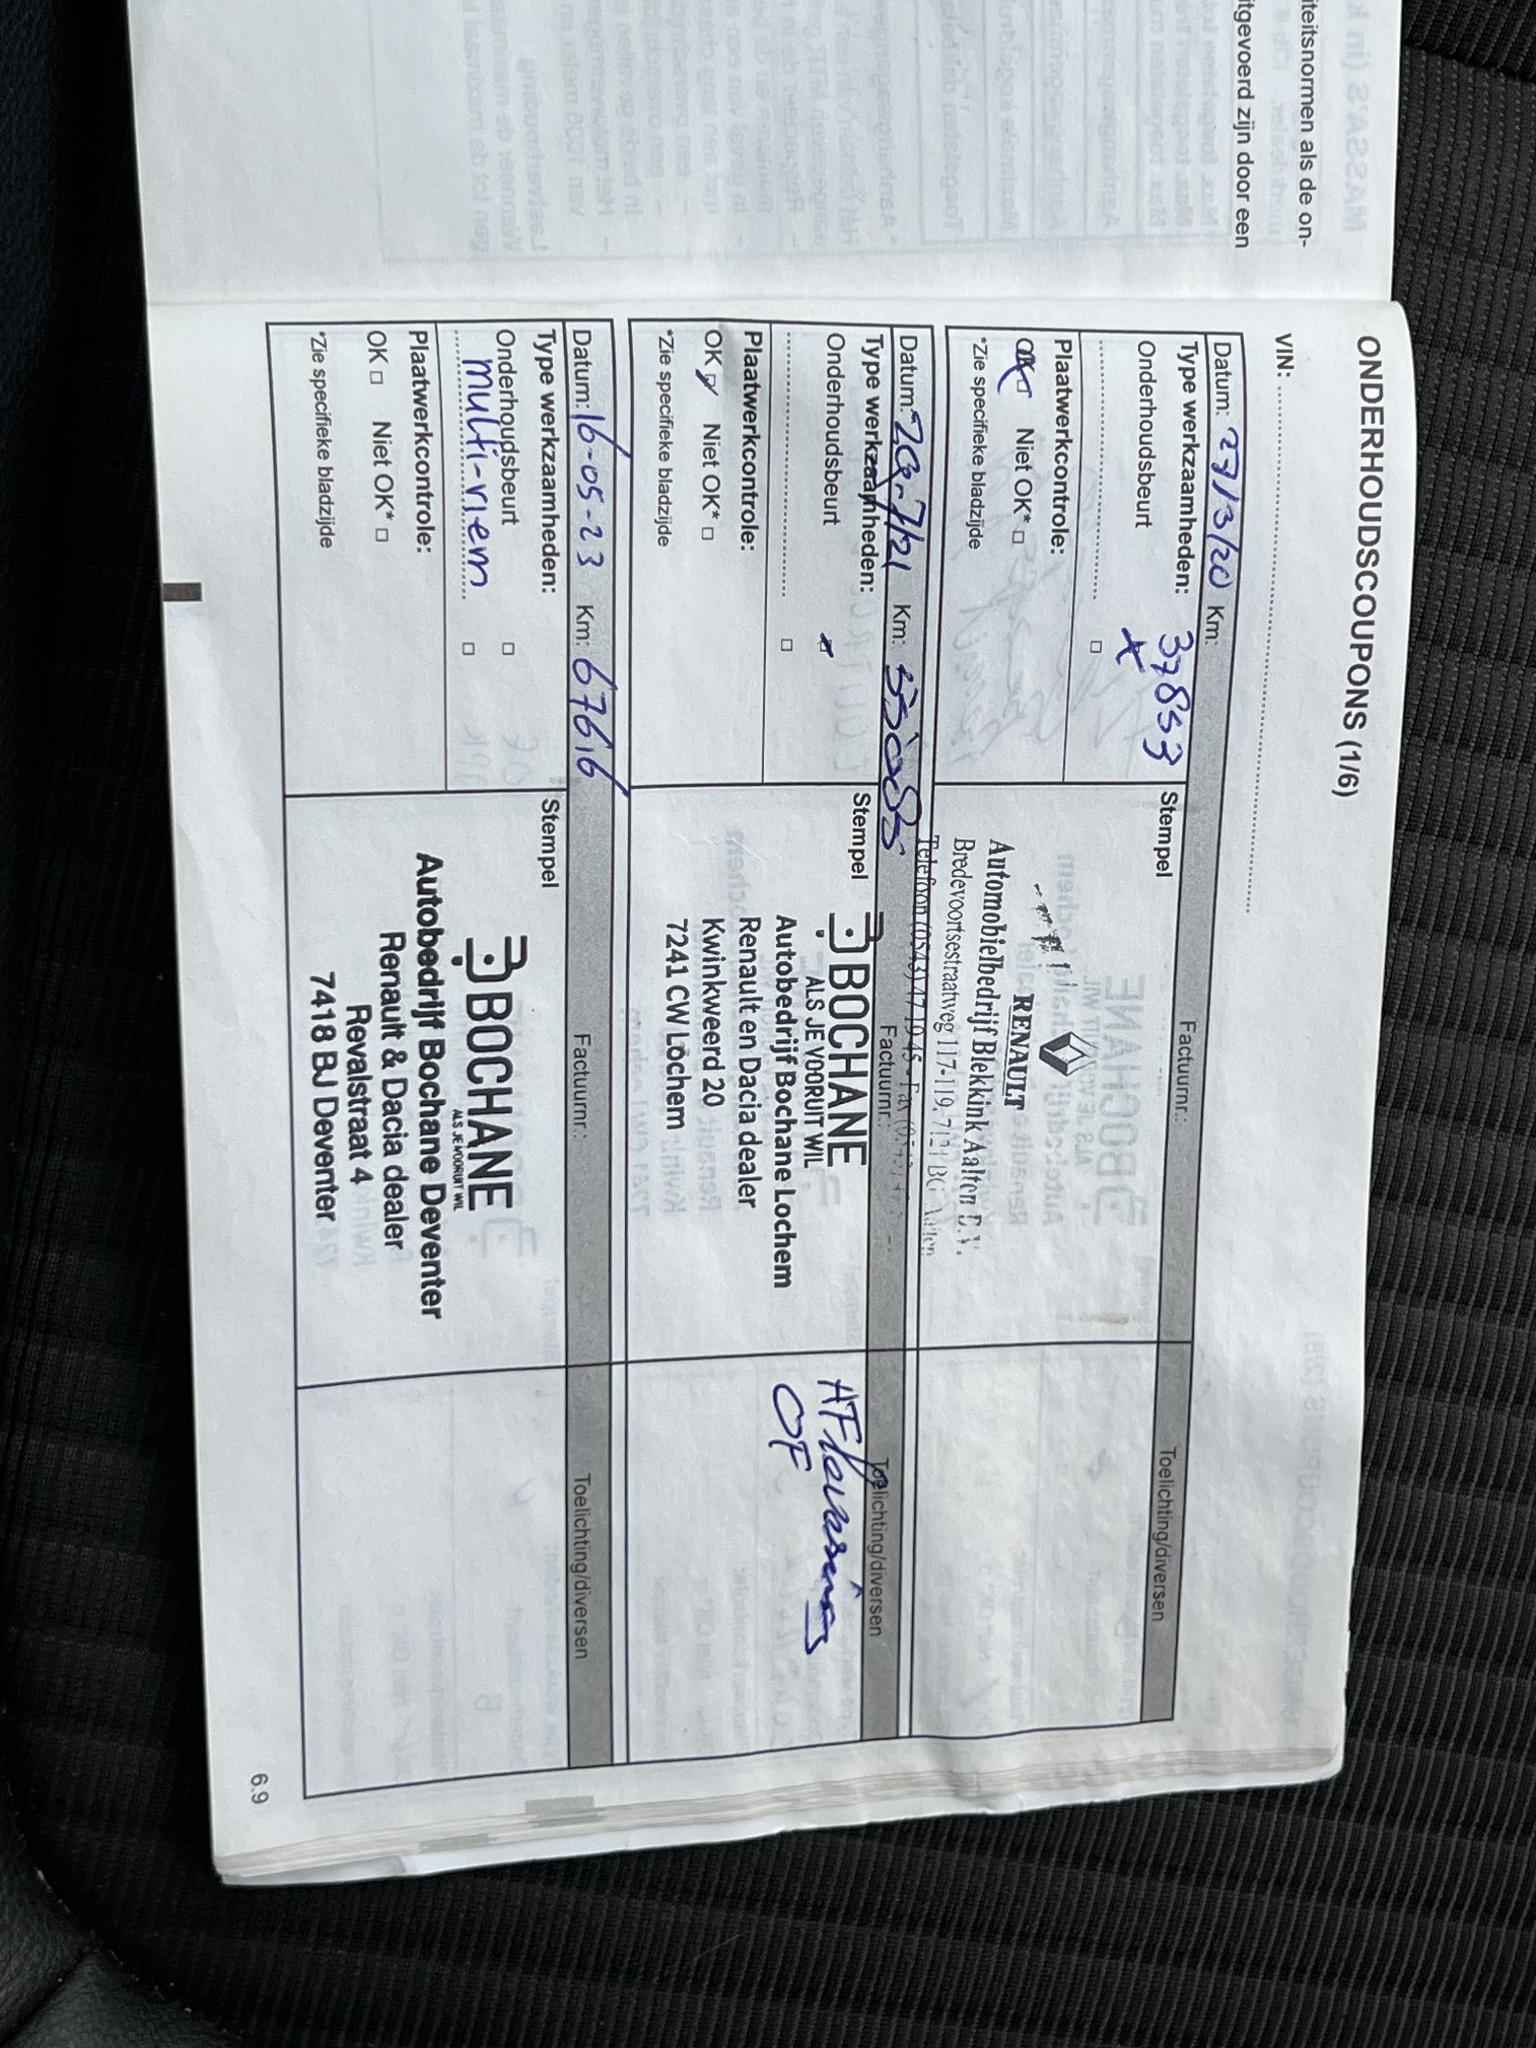 iteitsnormen als de on-
itgevoerd zijn door een
ONDERHOUDSCOUPONS (1/6)
VIN:
Datum: 23/3/20 Km: 37853 Factuurnr.: Toelichting/diversen
Type werkzaamheden:
Onderhoudsbeurt X
□
Plaatwerkcontrole:
OK □ Niet OK* □
*Zie specifieke bladzijde
Stempel
RENAULT
Automobielbedrijf Blekkink Aalten B.V.
Bredevoortsestraatweg 117-119, 7121 BG Aalten
Telefoon (0543) 47 19 45 - Fax
Datum: 20-7/21 Km: 55085 Factuurnr.: Toelichting/diversen
Type werkzaamheden:
Onderhoudsbeurt
□
Plaatwerkcontrole:
OK □ Niet OK* □
*Zie specifieke bladzijde
Stempel
BOCHANE
ALS JE VOORUIT WIL
Autobedrijf Bochane Lochem
Renault en Dacia dealer
Kwinkweerd 20
7241 CW Lochem
Aflevering
OF
Datum: 16-05-23 Km: 67616 Factuurnr.: Toelichting/diversen
Type werkzaamheden:
Onderhoudsbeurt □
multi-riem □
Plaatwerkcontrole:
OK □ Niet OK* □
*Zie specifieke bladzijde
Stempel
BOCHANE
ALS JE VOORUIT WIL
Autobedrijf Bochane Deventer
Renault & Dacia dealer
Revalstraat 4
7418 BJ Deventer
6.9